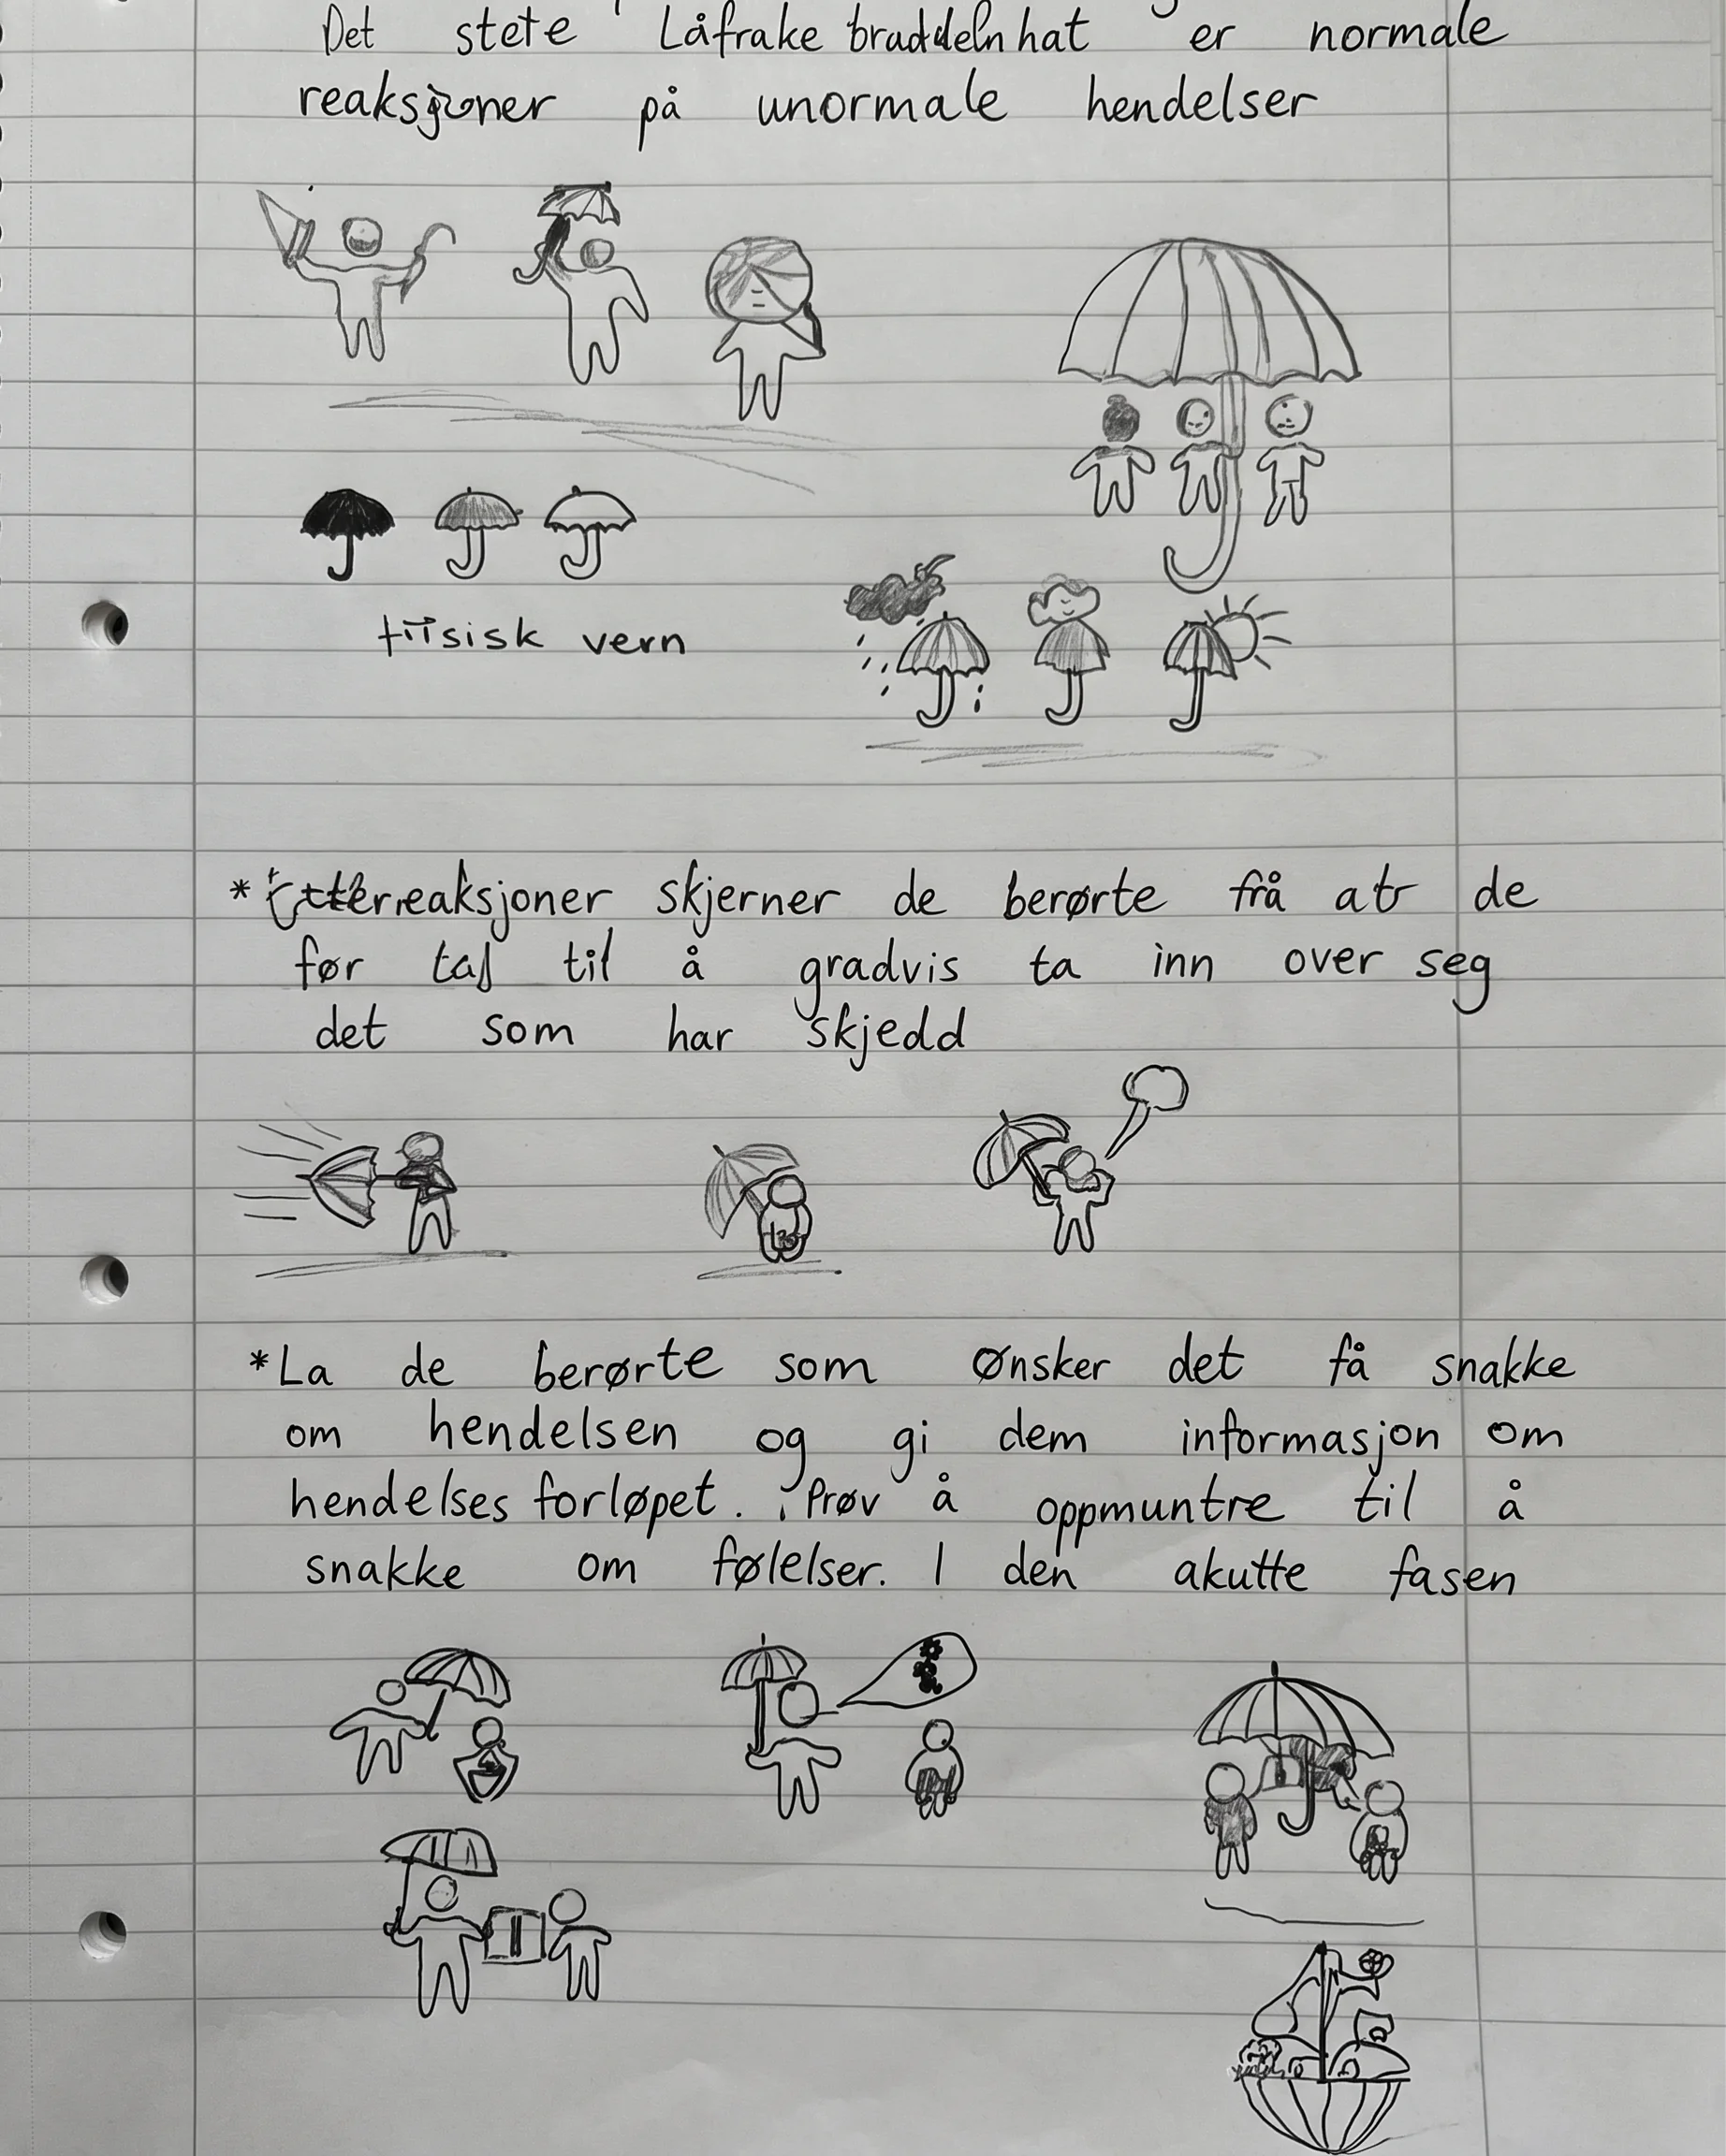 Det stete Låfrake hat er normale
reaksjoner på unormale hendelser
vern
* reaksjoner skjerner de berørte frå at de
før til å gradvis ta inn over seg
det som har skjedd
*La de berørte som ønsker det få snakke
om hendelsen og gi dem informasjon om
hendelses forløpet. Prøv å oppmuntre til å
snakke om følelser. I den akutte fasen